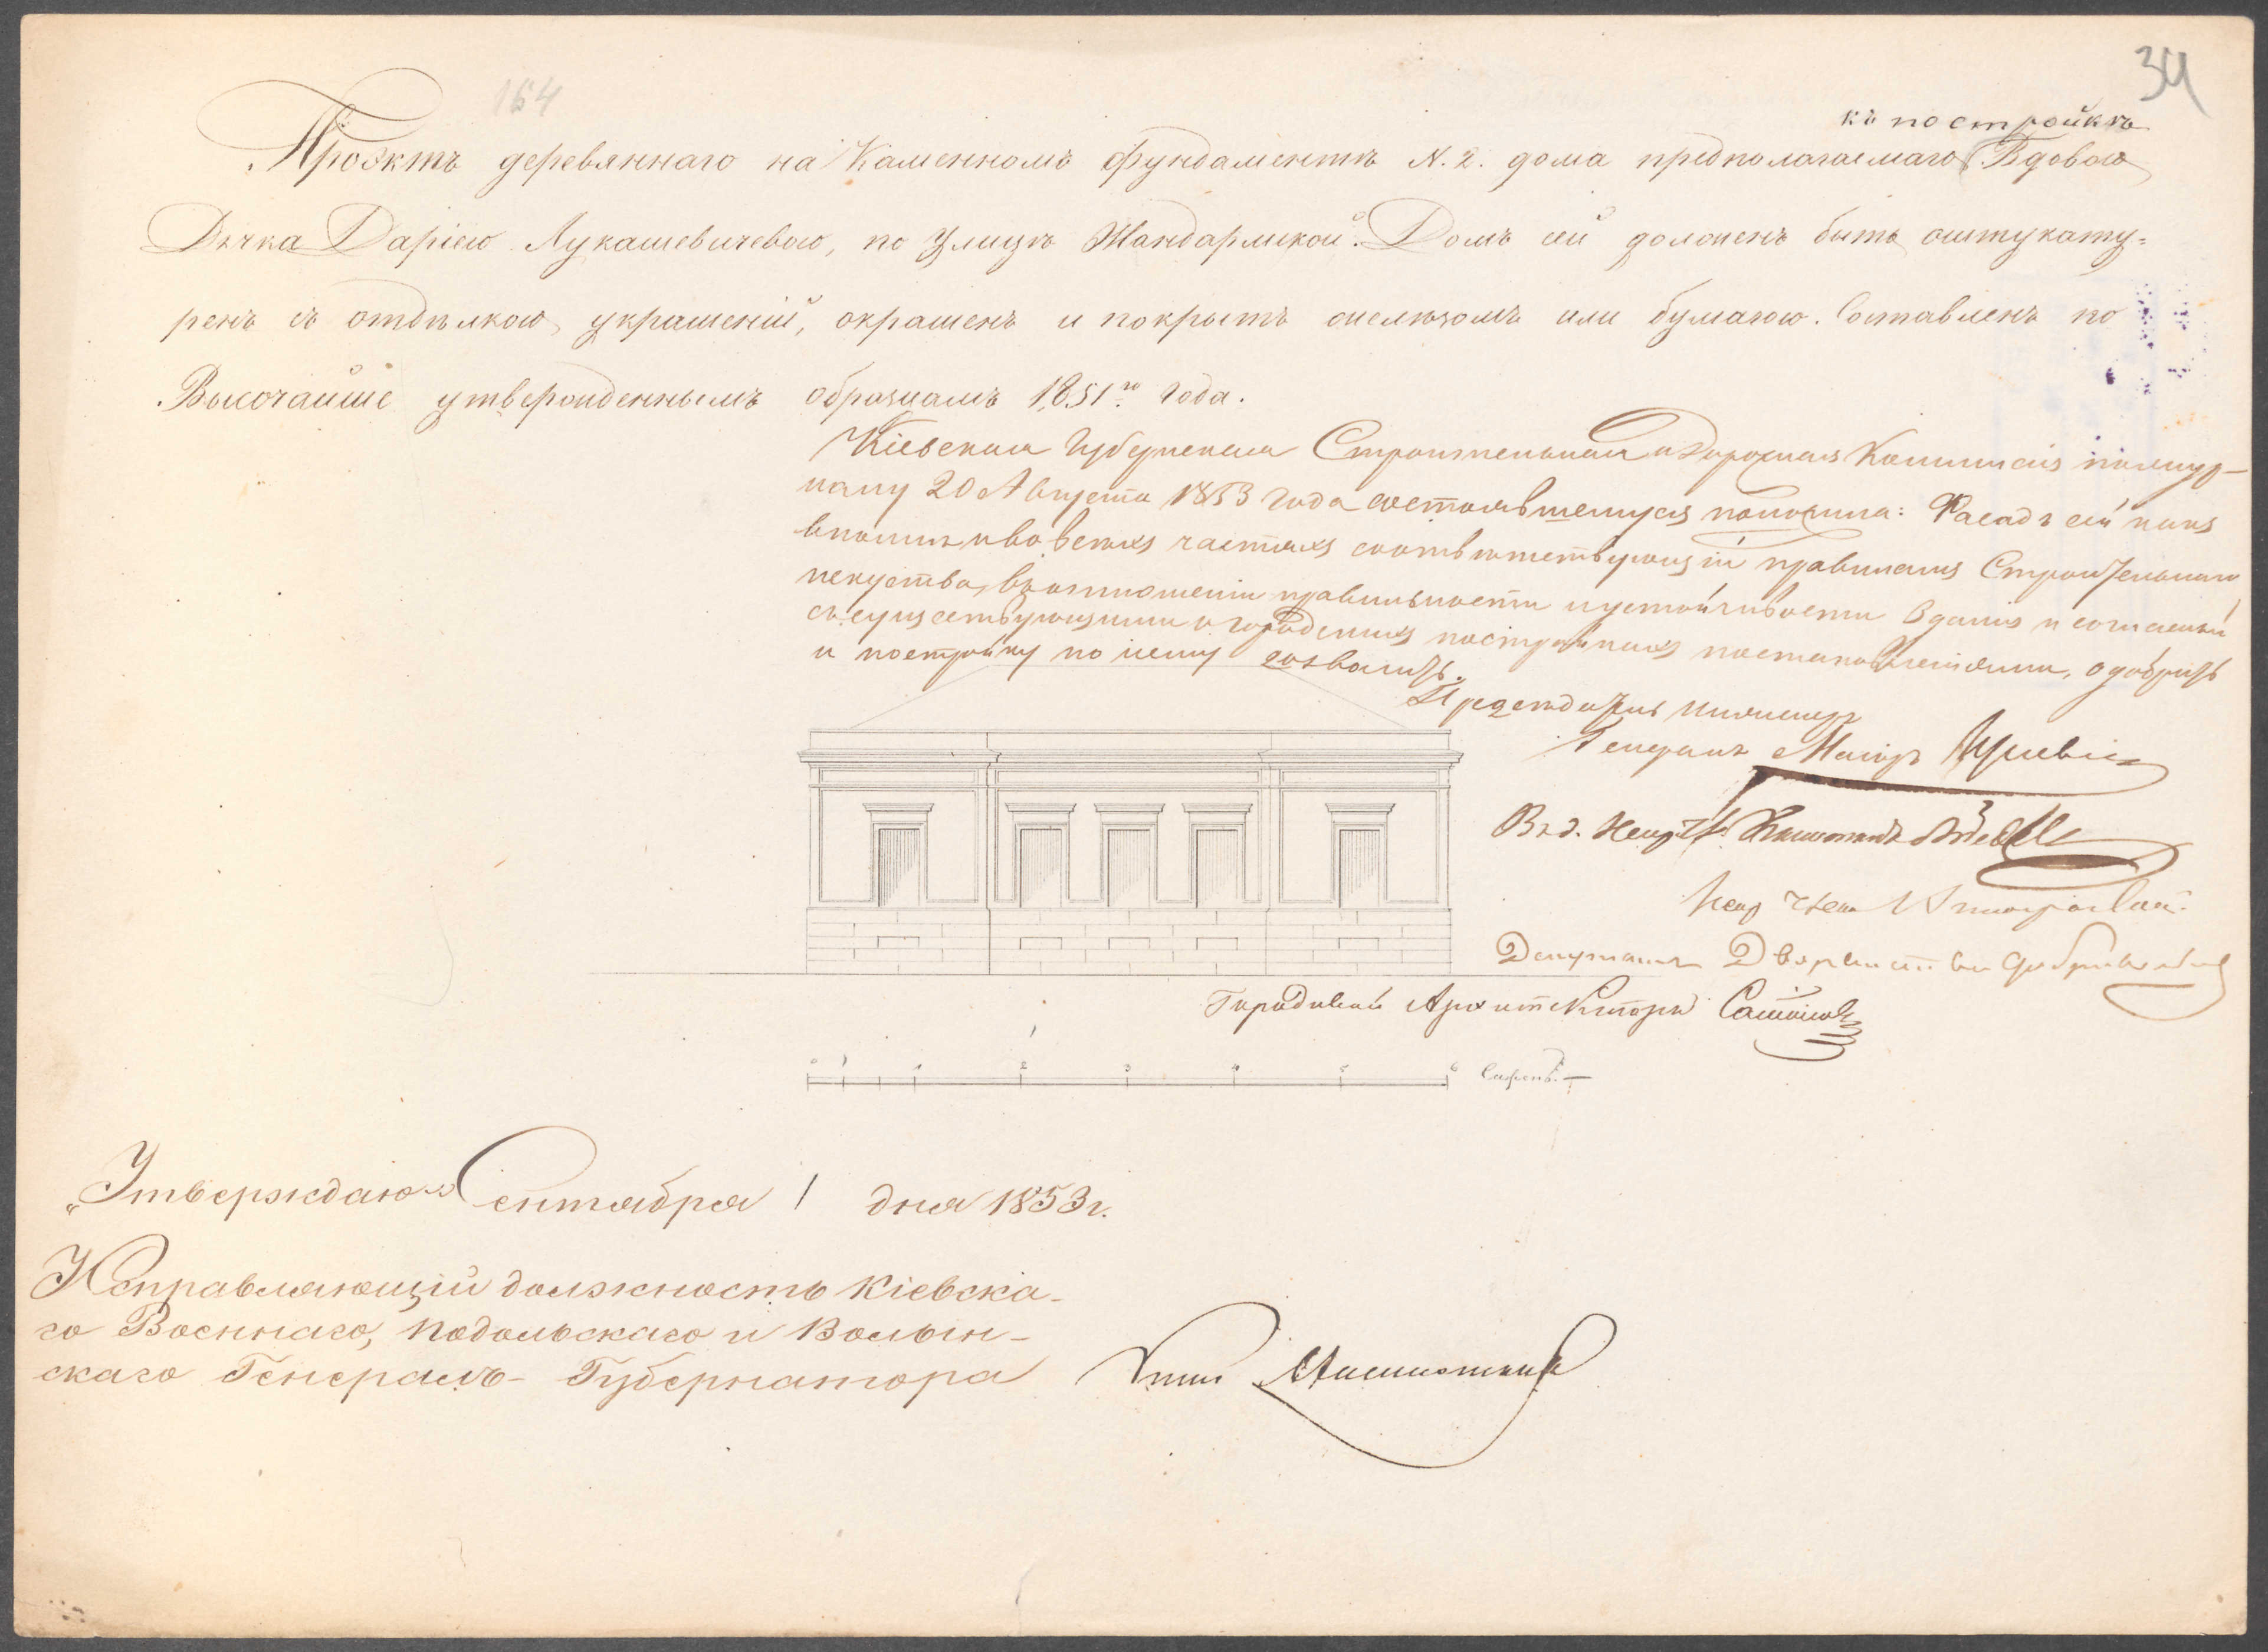 34
164
къ постройкѣ
Проэктъ деревяннаго на Каменномъ фундаментѣ N. 2. дома предполагаемаго Вдовою
Дьячка Дарiею Лукашевичевою, по Улицѣ Жандармской. Домъ сей долженъ быть оштукату=
ренъ съ отдѣлкою украшенiй, окрашенъ и покрытъ желѣзомъ или бумагою. Составленъ по
Высочайше утвержденнымъ образцамъ 1851го года.
Кiевская Губернская Строительная и Дорожная Коммисiя по жур-
налу 20 Августа 1853 года состоявшемуся положила: Фасадъ сей какъ
вполнѣ и во всѣхъ частяхъ соотвѣтствующiй правиламъ Строительнаго
искуства, въ отношенiи правильности и устойчивости зданiя и согласный
съ существующими о городскихъ постройкахъ постановленiями, одобрить
и постройку по нему дозволить.
Предсѣдатель Инженеръ
Генералъ Маiоръ
Депутатъ Дворянства
Городовой Архитекторъ
0 1 2 3 4 5 6 Сажень.
„Утверждаю“ Сентября 1 дня 1853 г.
Исправляющiй должность Кiевска-
го Военнаго, Подольскаго и Волын-
скаго Генералъ-Губернатора